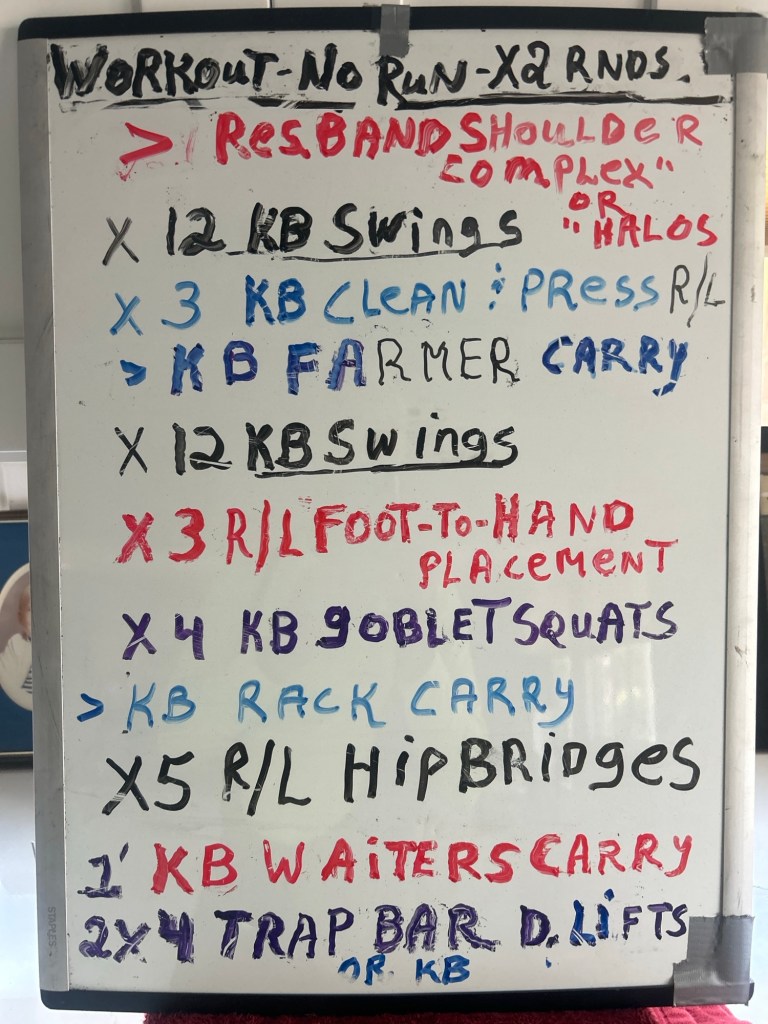 WORKOUT-NO RUN-X2 RNDS.
> RES.BAND SHOULDER
COMPLEX"
OR
X 12 KB SWINGS "HALOS
X 3 KB CLEAN & PRESS R/L
> KB FARMER CARRY
X 12 KB SWINGS
X 3 R/L FOOT-TO-HAND
PLACEMENT
X 4 KB GOBLET SQUATS
> KB RACK CARRY
X5 R/L HIP BRIDGES
1' KB WAITERS CARRY
2X4 TRAP BAR D. LIFTS
OR KB
STAPLES